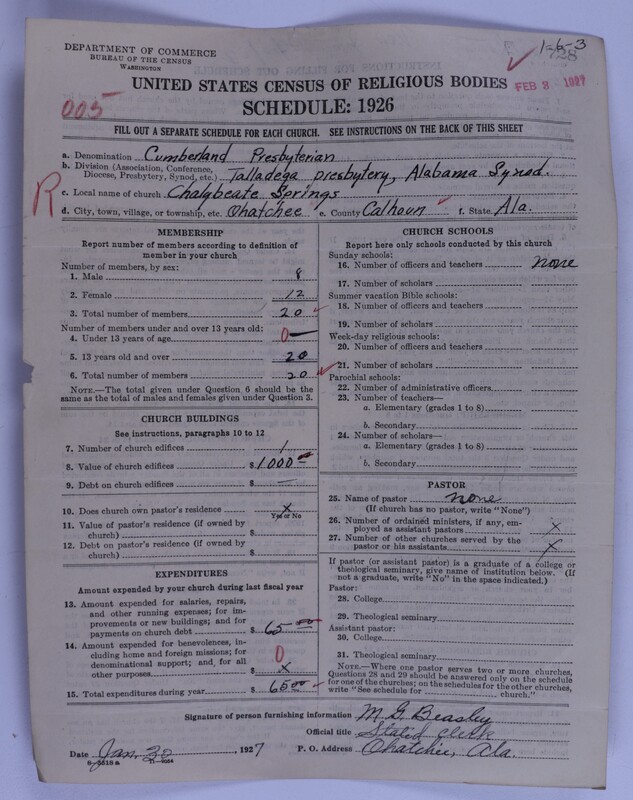 DEPARTMENT OF COMMERCE
BUREAU OF THE CENSUS
WASHINGTON
1-6-3
UNITED STATES CENSUS OF RELIGIOUS BODIES
FEB 3 1927
SCHEDULE: 1926
005
FILL OUT A SEPARATE SCHEDULE FOR EACH CHURCH. SEE INSTRUCTIONS ON THE BACK OF THIS SHEET
a. Denomination Cumberland Presbyterian
b. Division (Association, Conference, Diocese, Presbytery, Synod, etc.) Talladega presbytery, Alabama Synod.
R
c. Local name of church Chalybeate Springs
d. City, town, village, or township, etc. Ohatchee e. County Calhoun f. State Ala.
MEMBERSHIP
Report number of members according to definition of
member in your church
Number of members, by sex:
1. Male 8
2. Female 12
3. Total number of members 20
Number of members under and over 13 years old:
4. Under 13 years of age 0
5. 13 years old and over 20
6. Total number of members 20
NOTE.—The total given under Question 6 should be
same as the total of males and females given under Question 3.
CHURCH BUILDINGS
See instructions, paragraphs 10 to 12
7. Number of church edifices 1
8. Value of church edifices $1000 00
9. Debt on church edifices $ —
10. Does church own pastor's residence x
Yes or No
11. Value of pastor's residence (if owned by
church) $
12. Debt on pastor's residence (if owned by
church) $
EXPENDITURES
Amount expended by your church during last fiscal year
13. Amount expended for salaries, repairs,
and other running expenses; for im-
provements or new buildings; and for
payments on church debt $ 65 00
14. Amount expended for benevolences, in-
cluding home and foreign missions; for
denominational support; and for all
other purposes 0 $ x
15. Total expenditures during year $ 65 00
CHURCH SCHOOLS
Report here only schools conducted by this church
Sunday schools:
16. Number of officers and teachers none
17. Number of scholars
Summer vacation Bible schools:
18. Number of officers and teachers
19. Number of scholars
Week-day religious schools:
20. Number of officers and teachers
21. Number of scholars
Parochial schools:
22. Number of administrative officers
23. Number of teachers—
a. Elementary (grades 1 to 8)
b. Secondary
24. Number of scholars—
a. Elementary (grades 1 to 8)
b. Secondary
PASTOR
25. Name of pastor none
(If church has no pastor, write "None")
26. Number of ordained ministers, if any, em-
ployed as assistant pastors x
27. Number of other churches served by the
pastor or his assistants x
If pastor (or assistant pastor) is a graduate of a college or
theological seminary, give name of institution below. (If
not a graduate, write "No" in the space indicated.)
Pastor:
28. College
29. Theological seminary
Assistant pastor:
30. College
31. Theological seminary
NOTE.—Where one pastor serves two or more churches,
Questions 28 and 29 should be answered only on the schedule
for one of the churches; on the schedules for the other churches,
write "See schedule for church."
Signature of person furnishing information M. G. Beasley
Official title Stated clerk
Date Jan. 30, 1927 P. O. Address Ohatchie, Ala.